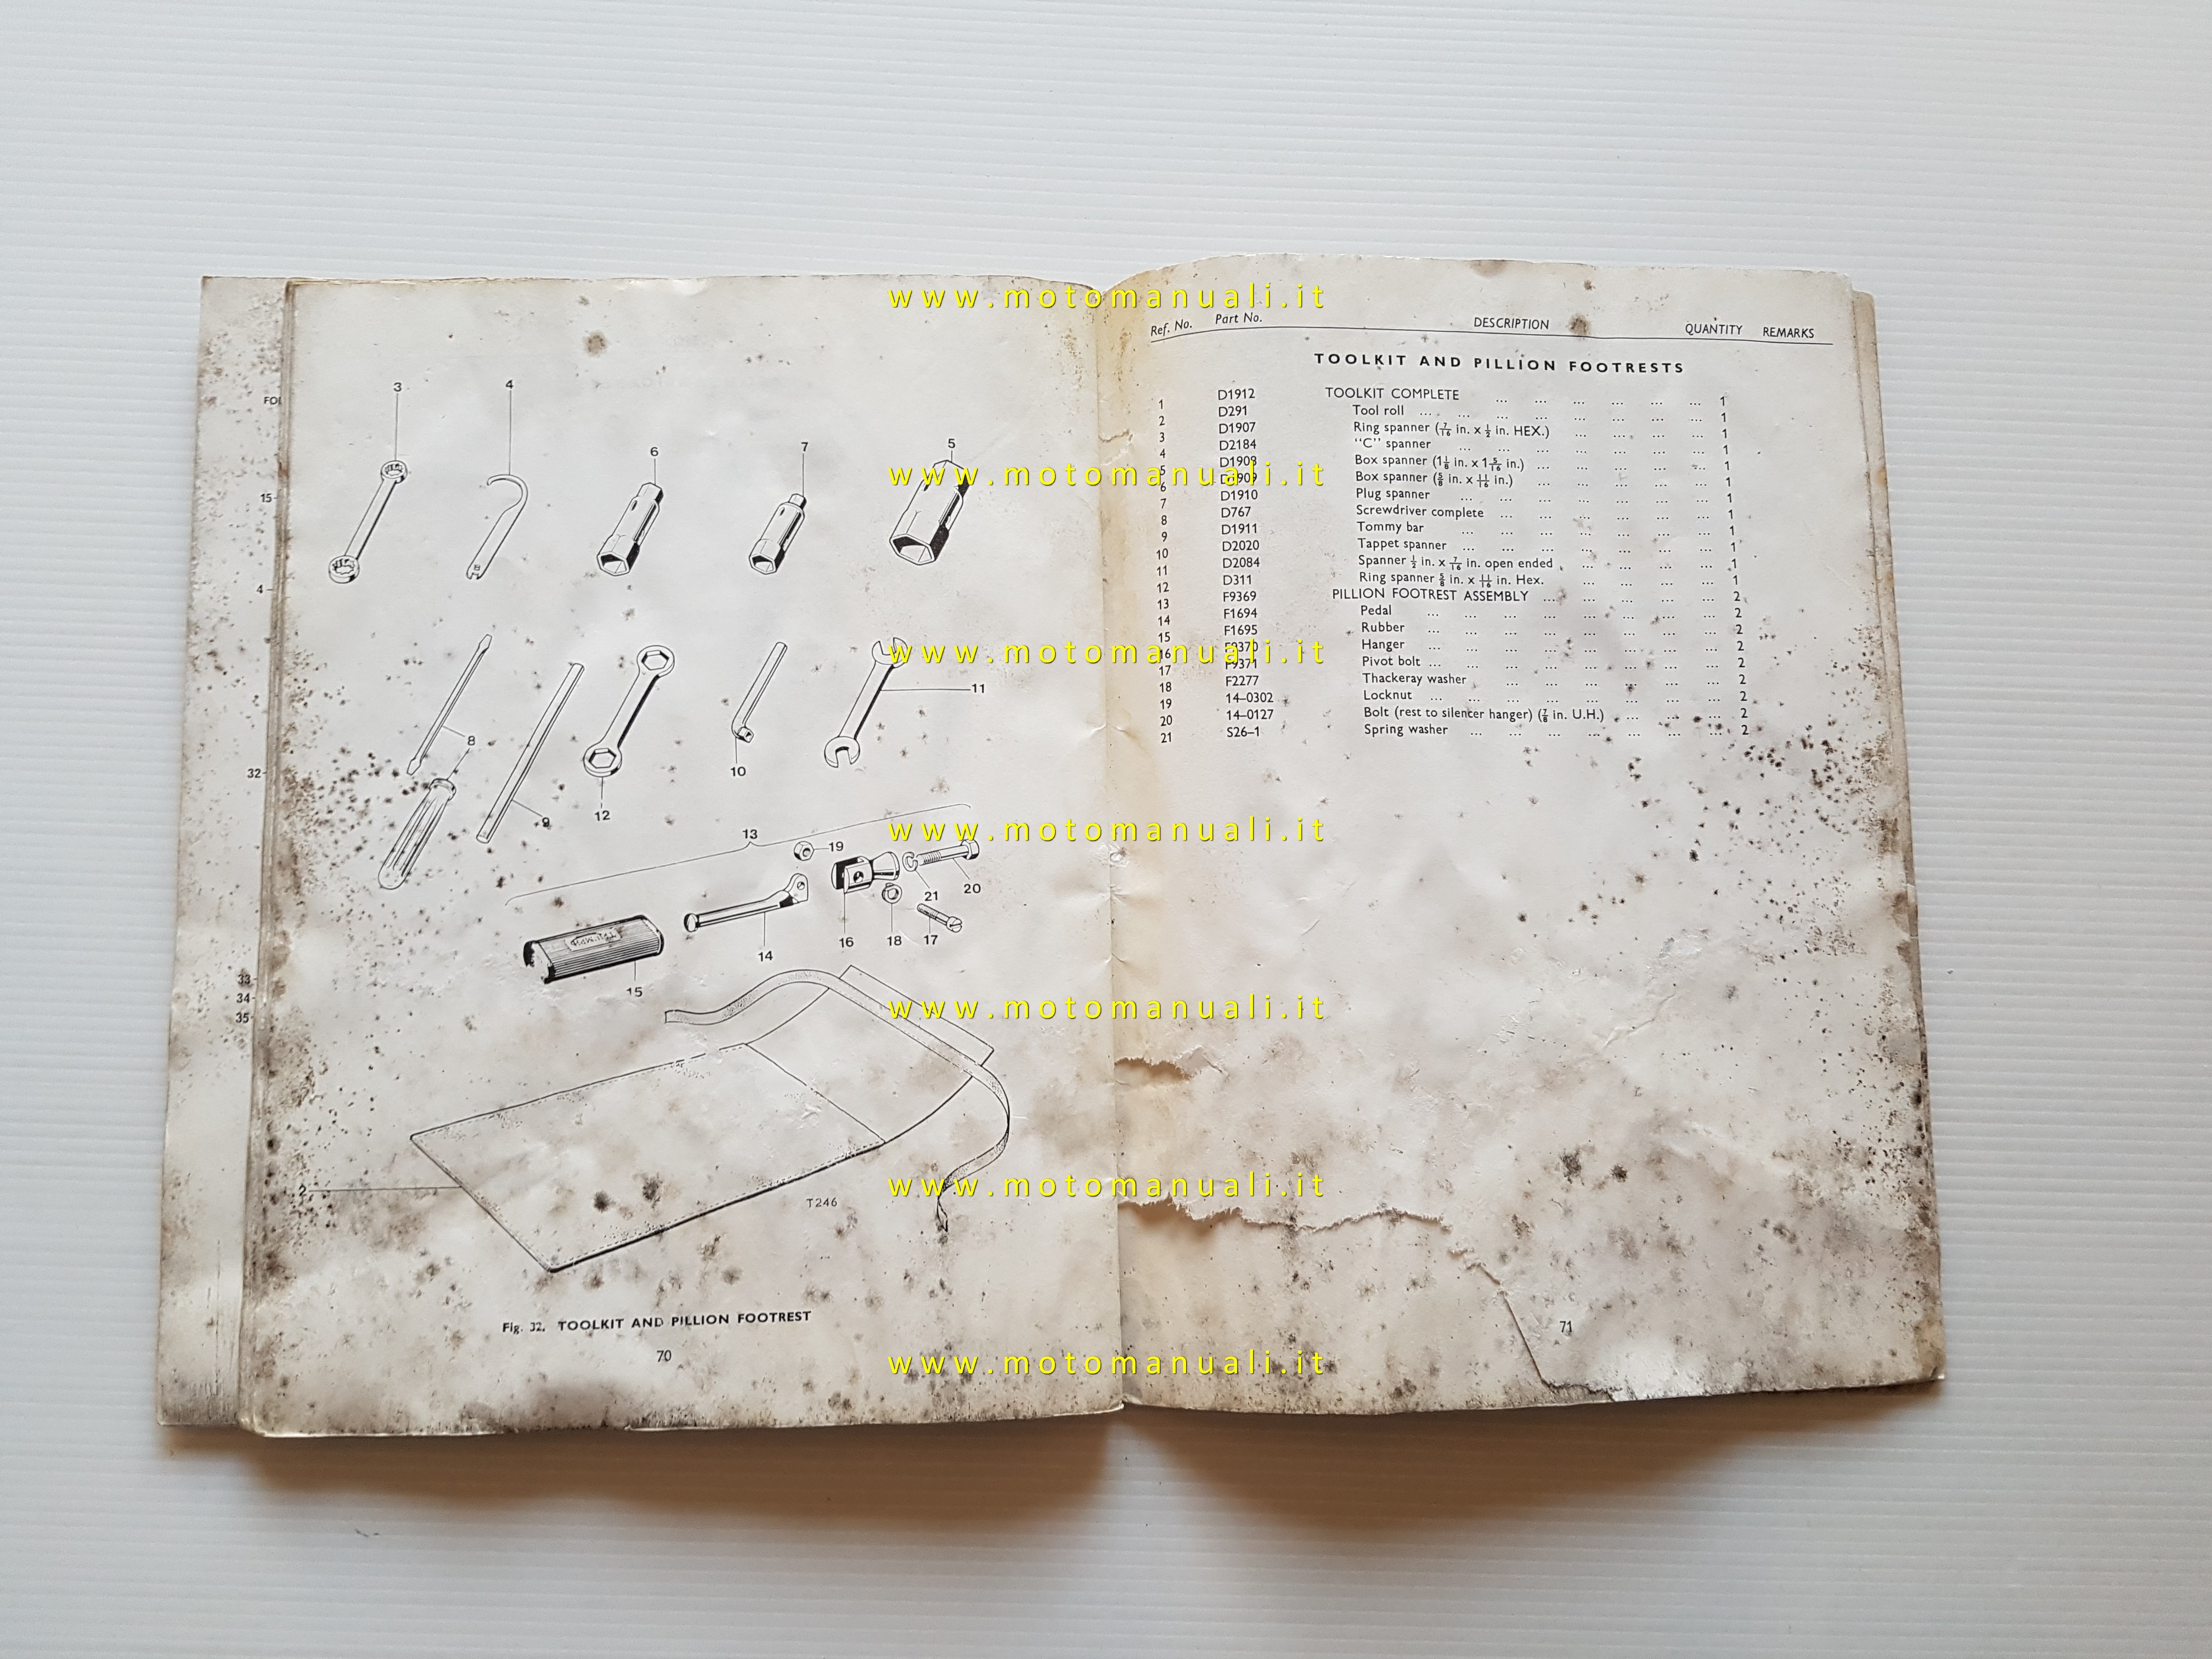 www.motomanuali.it
3
4
6
7
5
FO
15
4
8
9
12
10
11
32
13
19
20
21
16
18
17
14
15
33
34
35
2
T246
Fig. 32. TOOLKIT AND PILLION FOOTREST
70
Ref. No. Part No. DESCRIPTION QUANTITY REMARKS
TOOLKIT AND PILLION FOOTRESTS
1 D1912 TOOLKIT COMPLETE ... ... ... ... ... ... 1
2 D291 Tool roll ... ... ... ... ... ... ... 1
3 D1907 Ring spanner (7/16 in. x 1/2 in. HEX.) ... ... ... ... 1
4 D2184 "C" spanner ... ... ... ... ... ... 1
5 D1908 Box spanner (1 1/8 in. x 1 5/16 in.) ... ... ... ... ... 1
6 D1909 Box spanner (5/8 in. x 11/16 in.) ... ... ... ... ... 1
7 D1910 Plug spanner ... ... ... ... ... ... 1
8 D767 Screwdriver complete ... ... ... ... ... ... 1
9 D1911 Tommy bar ... ... ... ... ... ... 1
10 D2020 Tappet spanner ... ... ... ... ... ... ... 1
11 D2084 Spanner 1/2 in. x 7/16 in. open ended ... ... ... ... 1
12 D311 Ring spanner 5/8 in. x 11/16 in. Hex. ... ... ... ... 1
13 F9369 PILLION FOOTREST ASSEMBLY ... ... ... ... ... 2
14 F1694 Pedal ... ... ... ... ... ... ... 2
15 F1695 Rubber ... ... ... ... ... ... ... ... 2
16 F9370 Hanger ... ... ... ... ... ... ... ... 2
17 F9371 Pivot bolt ... ... ... ... ... ... ... ... 2
18 F2277 Thackeray washer ... ... ... ... ... ... 2
19 14-0302 Locknut ... ... ... ... ... ... ... ... 2
20 14-0127 Bolt (rest to silencer hanger) (7/8 in. U.H.) ... ... ... 2
21 S26-1 Spring washer ... ... ... ... ... ... ... 2
71
www.motomanuali.it
www.motomanuali.it
www.motomanuali.it
www.motomanuali.it
www.motomanuali.it
www.motomanuali.it